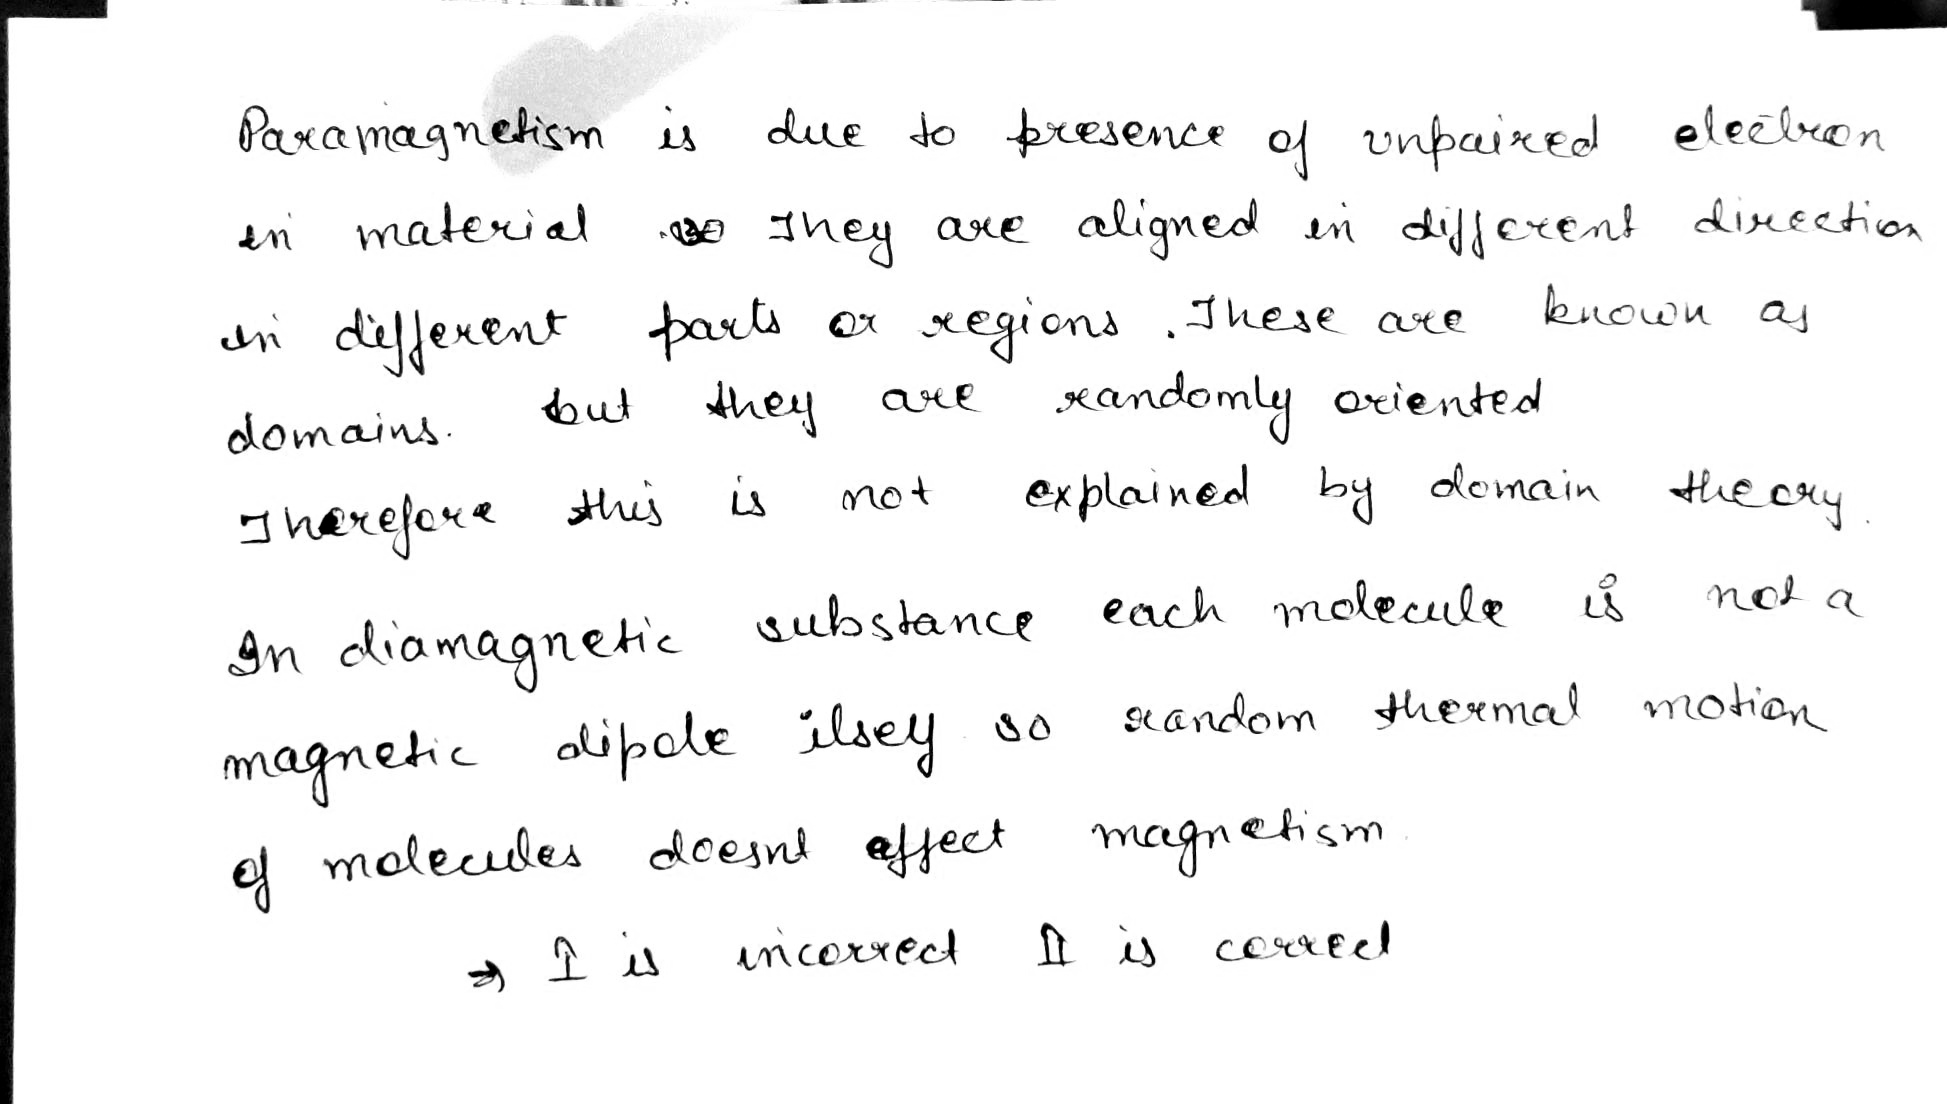 Paramagnetism is due to presence of unpaired electron
in material so They are aligned in different direction
in different parts or regions. These are known as
domains. but they are randomly oriented
Therefore this is not explained by domain theory.
In diamagnetic substance each molecule is not a
magnetic dipole itsey so random thermal motion
of molecules doesnt affect magnetism.
⇒ I is incorrect II is correct